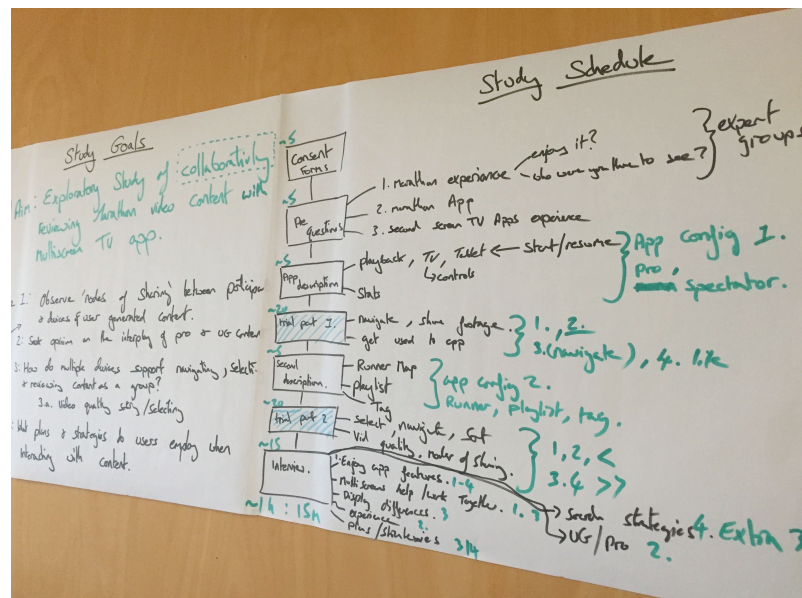 Study Goals
Aim: Exploratory Study of collaborativly
Reviewing Marathon video content with
Multiscreen TV app.
1: Observe 'nodes of sharing' between
devices & user generated content.
2: Seek opinion on the interplay of pro & UG content
3: How do multiple devices support navigating,
& reviewing content as a group?
3.a. Video quality /selecting
What plans & strategies do users employ when
interacting with content.
Study Schedule
~5
Consent
Forms
~5
Pre
questions
1. Marathon experience
enjoy it?
who were you there to see?
expert
groups
2. Marathon App
3. second screen TV Apps experience
~5
App
description
playback, TV, Tablet ← start/resume
controls
Stats
App config 1.
pro,
spectator.
~20
trial part 1.
navigate, share footage.
get used to app
1., 2.
3.(navigate), 4. like
~5
Second
description.
Runner Map
playlist
Tag
app config 2.
Runner, playlist, tag.
~20
trial part 2
select, navigate, sort
Vid quality. nodes of sharing.
1, 2, <
3. 4 >>
~15
Interview.
Enjoy app features. 1-4
Multiscreens help /work Together. 1. 3
Display differences. 3
experience 2.
plans /strategies 3/4
search strategies 4. Extra 3
UG/Pro 2.
~1h : 15m